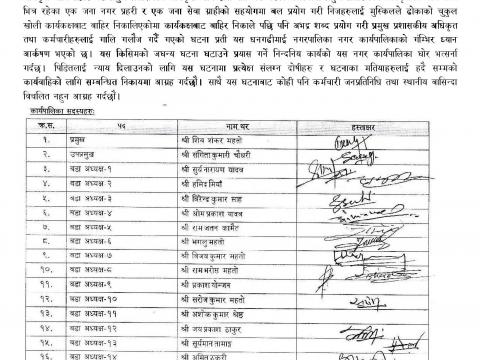 भित्र रहेका एक जना नगर प्रहरी र एक जना सेवा ग्राहीको सहयोगमा बल प्रयोग गरी निजहरुलाई मुस्किलले ढोकाको चुकुल
खोली कार्यकक्षबाट बाहिर निकालिएकोमा कार्यकक्षबाट बाहिर निकाले पछि पनि अभद्र शब्द प्रयोग गरी प्रमुख प्रशासकीय अधिकृत
तथा कर्मचारीहरुलाई गालि गलौज गर्दै गएको घटना प्रती यस धनगढीमाई नगरपालिका नगर कार्यपालिकाको गम्भिर ध्यान
आर्कषण भएको छ। यस किसिमको जघन्य घटना घटाउने प्रयास गर्ने निन्दनिय कार्यको यस नगर कार्यपालिका घोर भर्त्सना
गर्दछ। पिडितलाई न्याय दिलाउनको लागि यस घटनामा प्रत्यक्ष संलग्न दोषीहरु र घटनाका मतियाहरुलाई हदै सम्मको
कार्यवाहिको लागि सम्बन्धित निकायमा आग्रह गर्दछौं। साथै यस घटनाबाट कोही पनि कर्मचारी जनप्रतिनिधि तथा स्थानीय बासिन्दा
विचलित नहुन आग्रह गर्दछौं।
कार्यपालिका सदस्यहरुः
क्र.स. पद नाम थर हस्ताक्षर
१. प्रमुख श्री शिव शंकर महतो
२. उपप्रमुख श्री संगिता कुमारी चौधरी
३. वडा अध्यक्ष-१ श्री सुर्य नारायण यादव
४. वडा अध्यक्ष-२ श्री हनिद मियाँ
५. वडा अध्यक्ष-३ श्री विरेन्द्र कुमार साह
६. वडा अध्यक्ष-४ श्री ओम प्रकाश यादव
७. वडा अध्यक्ष-५ श्री राम जतन कामैत
८. वडा अध्यक्ष-६ श्री भगलु महतो
९. वडा अध्यक्ष-७ श्री विजय कुमार महतो
१०. वडा अध्यक्ष-८ श्री राम भरोस महतो
११. वडा अध्यक्ष-९ श्री प्रकाश योन्जन
१२. वडा अध्यक्ष-१० श्री सरोज कुमार महतो
१३. वडा अध्यक्ष-११ श्री अशोक कुमार श्रेष्ठ
१४. वडा अध्यक्ष-१२ श्री जय प्रकाश ठाकुर
१५. वडा अध्यक्ष-१३ श्री सुर्यमान तामाङ
१६. वडा अध्यक्ष-१४ श्री अमित ठकुरी